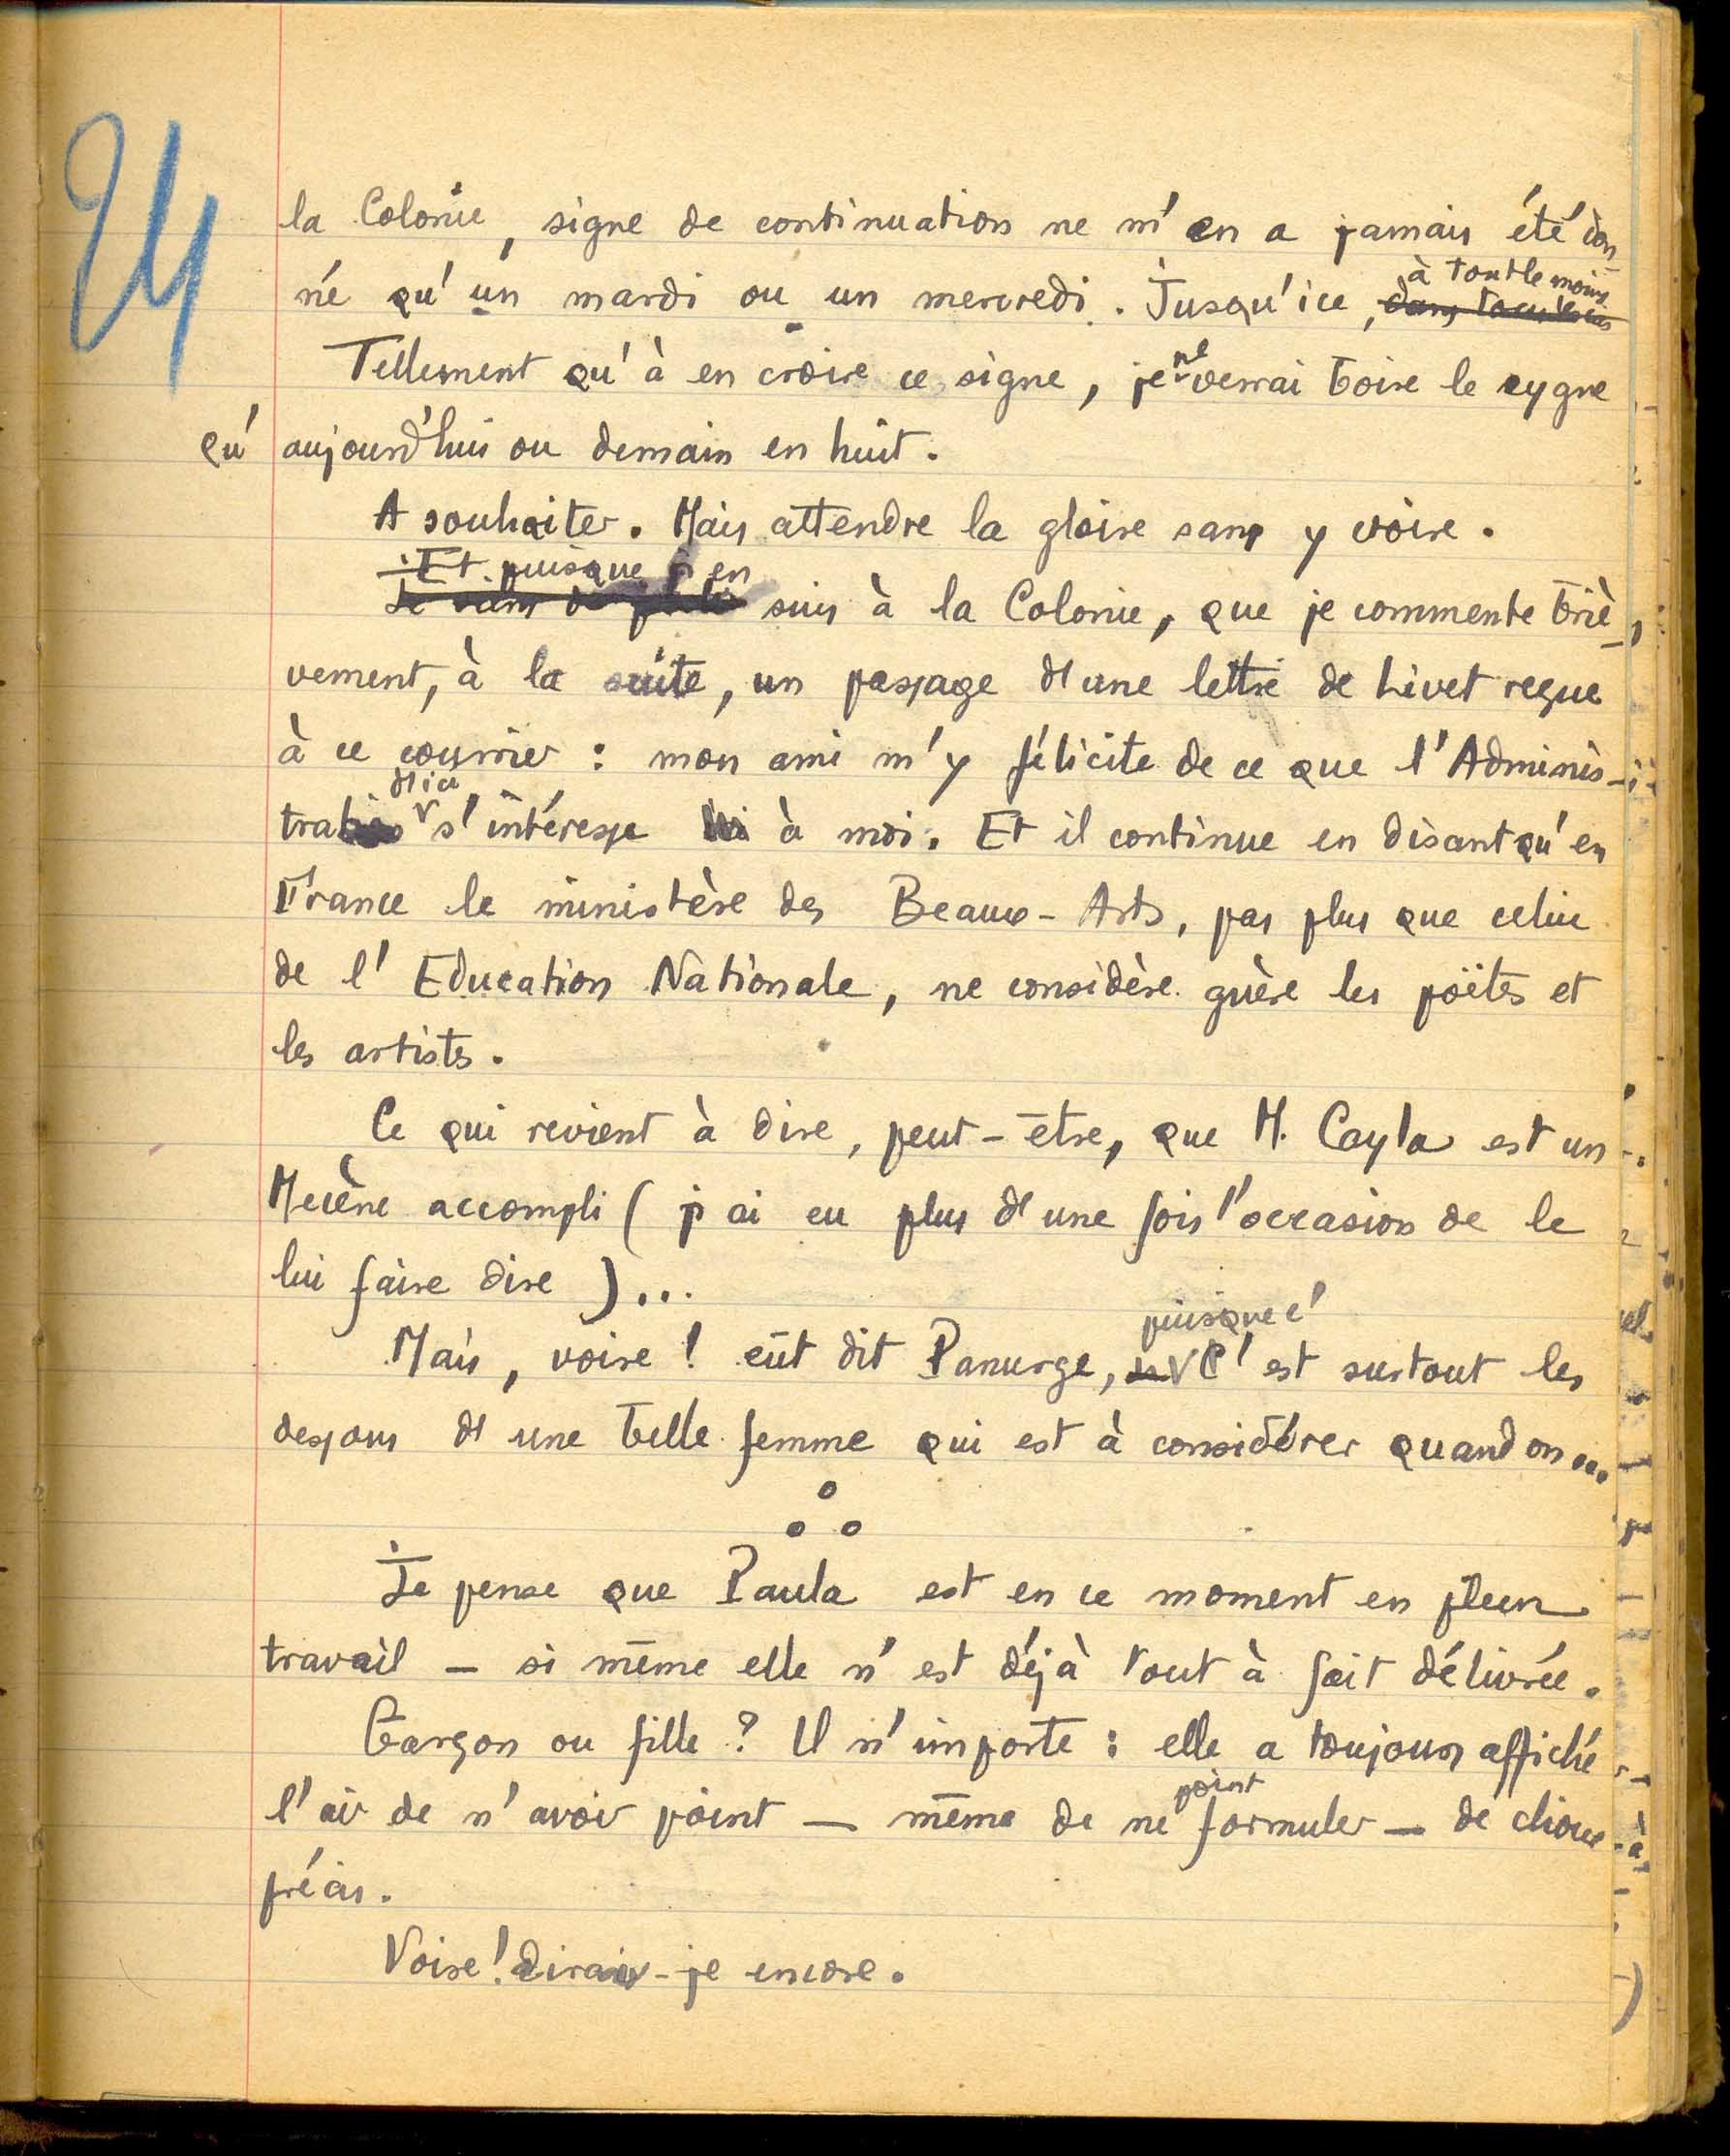 24
la Colonie, signe de continuation ne m'en a jamais été don-
né qu'un mardi ou un mercredi. Jusqu'ici, à tout le moins.
Tellement qu'à en croire ce signe, je ne verrai boire le cygne
qu'aujourd'hui ou demain en huit.
A souhaiter. Mais attendre la gloire sans y croire.
Et puisque j'en
suis à la Colonie, que je commente briè-
vement, à la suite, un passage d'une lettre de Livet reçue
à ce courrier : mon ami m'y félicite de ce que l'Adminis-
tration d'ici s'intéresse à moi. Et il continue en disant qu'en
France le ministère des Beaux-Arts, pas plus que celui
de l'Education Nationale, ne considère guère les poëtes et
les artistes.
Ce qui revient à dire, peut-être, que M. Cayla est un
Mécène accompli (j'ai eu plus d'une fois l'occasion de le
lui faire dire)...
puisque c'
Mais, voire ! eût dit Panurge, c'est surtout les
dessous d'une belle femme qui est à considérer quand on...
Je pense que Paula est en ce moment en plein
travail — si même elle n'est déjà tout à fait délivrée.
Garçon ou fille ? Il n'importe : elle a toujours affiché
l'air de n'avoir point — même de ne point formuler — de choix
précis.
Voire ! dirais-je encore.